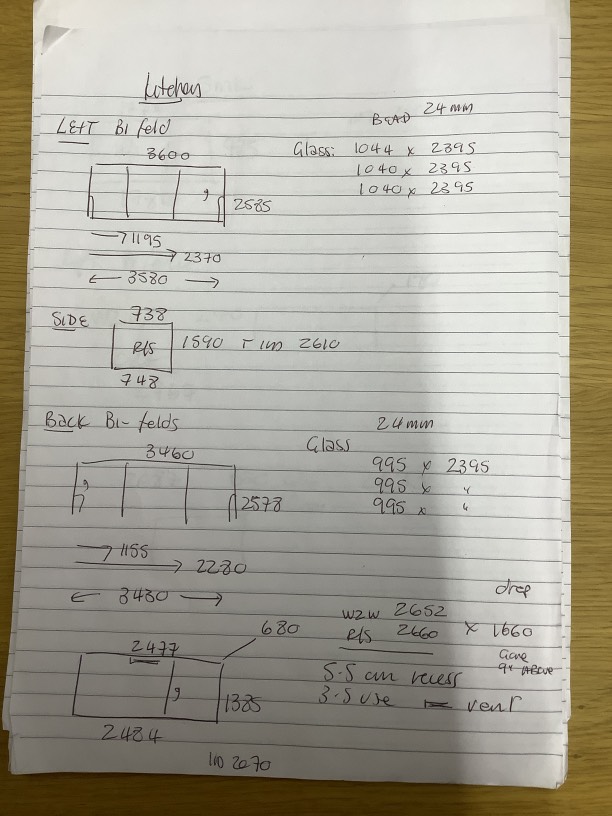 Kitchen
LEFT Bi fold
BEAD 24mm
3600
Glass: 1044 x 2395
1040 x 2395
1040 x 2395
2585
1195
2370
3580
SIDE 738
R/S 1590 2610
748
Back Bi-folds
24mm
Glass
3460
995 x 2395
995 x "
995 x "
2578
1155
2280
3430
drop
W2W 2652
R/S 2660 x 1660
680
2477
9" ABOVE
5.5 cm recess
3.5 use vent
1385
2484
2670